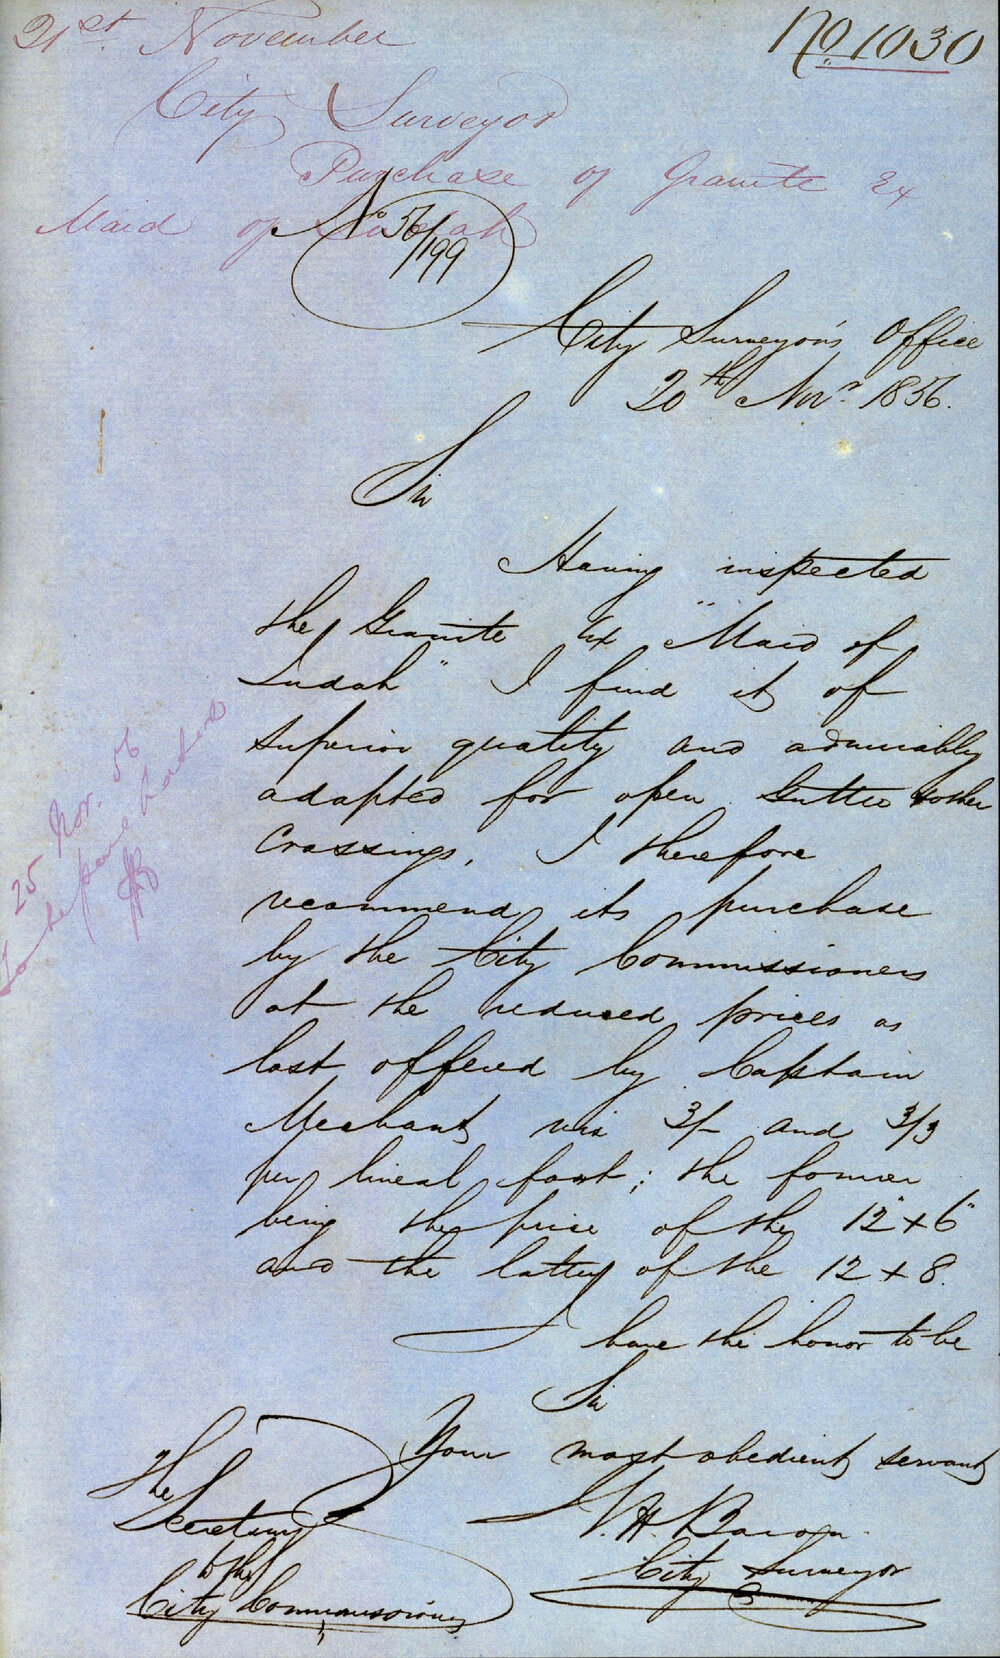 21st November
No 1030
City Surveyor
Purchase of Granite Ex
Maid of Judah
No 56/199
City Surveyor's Office
20th Novr. 1856.
Sir
Having inspected
the Granite Ex "Maid of
Judah" I find it of
superior quality and admirably
adapted for open Gutter & other
Crossings. I therefore
recommend its purchase
by the City Commissioners
at the reduced prices as
last offered by Captain
Merchant viz 3/- and 3/3
per lineal foot; the former
being the price of the 12" x 6"
and the latter of the 12 x 8.
I have the honor to be
Sir
Your most obedient servant
W. H. Baron
City Surveyor
The
Secretary
to the
City Commissioners
25 Nov. 56
To be purchased